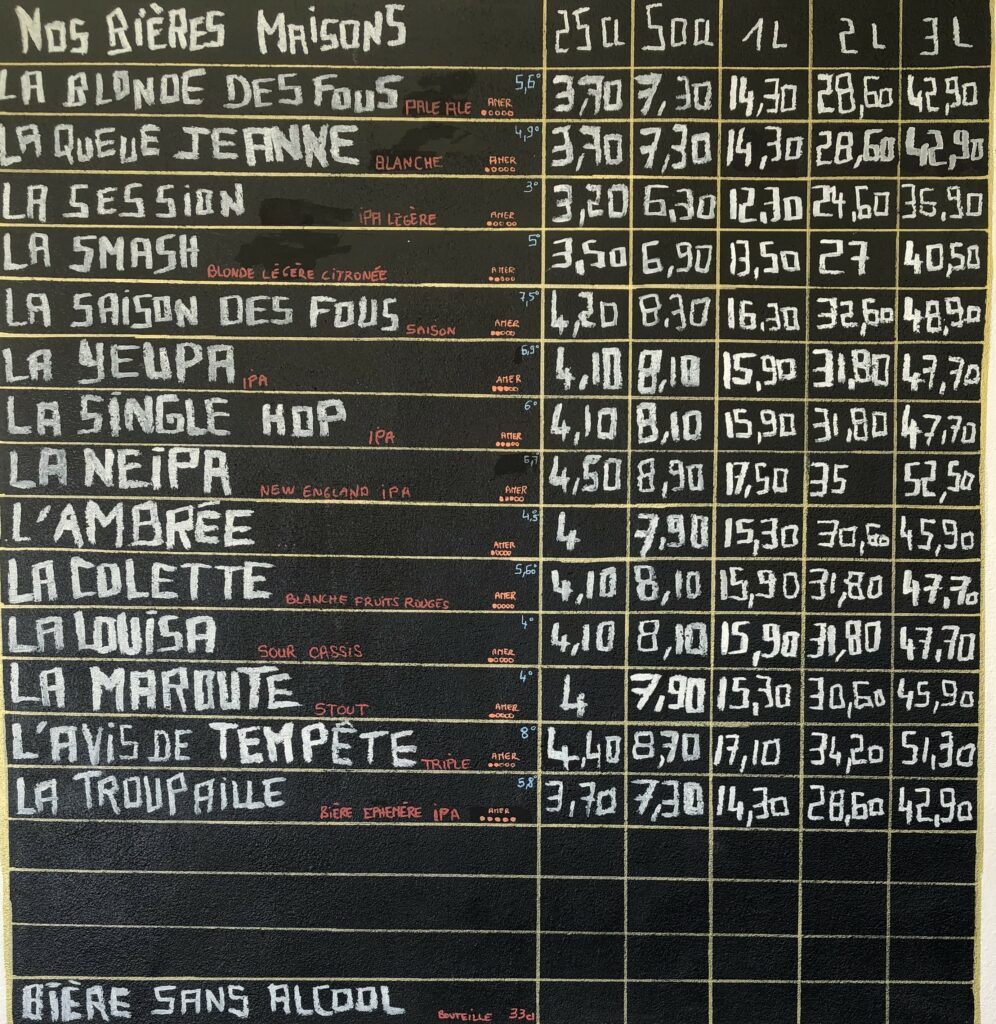 NOS BIÈRES MAISONS 25CL 50CL 1L 2L 3L
LA BLONDE DES FOUS PALE ALE 5,6° AMER 3,70 7,30 14,30 28,60 42,90
LA QUEUE JEANNE BLANCHE 4,9° AMER 3,70 7,30 14,30 28,60 42,90
LA SESSION IPA LÉGÈRE 3° AMER 3,20 6,30 12,30 24,60 36,90
LA SMASH BLONDE LÉGÈRE CITRONÉE 5° AMER 3,50 6,90 13,50 27 40,50
LA SAISON DES FOUS SAISON 7,5° AMER 4,20 8,30 16,30 32,60 48,90
LA YEUPA IPA 6,9° AMER 4,10 8,10 15,90 31,80 47,70
LA SINGLE HOP IPA 6° AMER 4,10 8,10 15,90 31,80 47,70
LA NEIPA NEW ENGLAND IPA AMER 4,50 8,90 17,50 35 52,50
L'AMBRÉE AMER 4 7,90 15,30 30,60 45,90
LA COLETTE BLANCHE FRUITS ROUGES 5,6° AMER 4,10 8,10 15,90 31,80 47,70
LA LOUISA SOUR CASSIS 4° AMER 4,10 8,10 15,90 31,80 47,70
LA MAROUTE STOUT 4° AMER 4 7,90 15,30 30,60 45,90
L'AVIS DE TEMPÊTE TRIPLE 8° AMER 4,40 8,70 17,10 34,20 51,30
LA TROUPAILLE BIÈRE EPHEMÉRE IPA 5,8° AMER 3,70 7,30 14,30 28,60 42,90
BIÈRE SANS ALCOOL BOUTEILLE 33cl